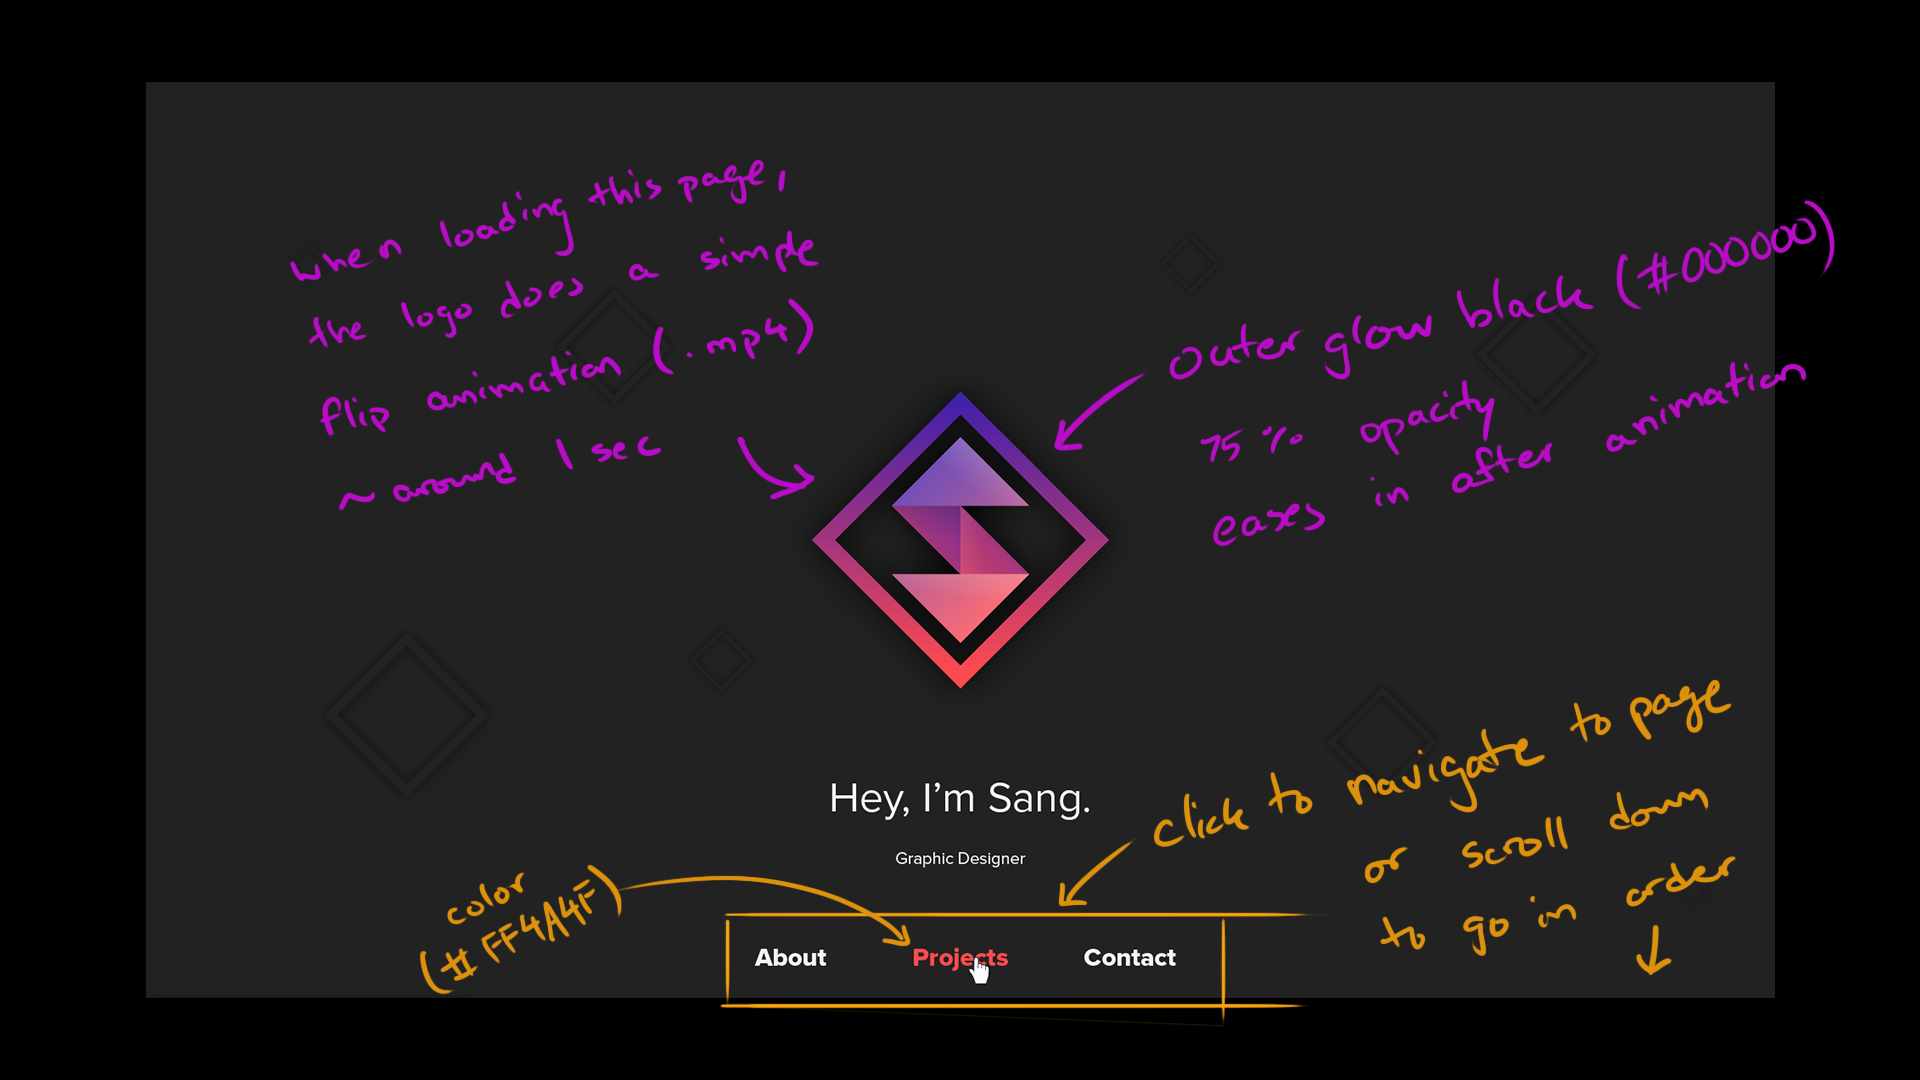 when loading this page,
the logo does a simple
flip animation (.mp4)
~ around 1 sec
outer glow black (#000000)
75% opacity
eases in after animation
Hey, I’m Sang.
Graphic Designer
click to navigate to page
or scroll down
to go in order
color
(#FF4A4F)
About Projects Contact